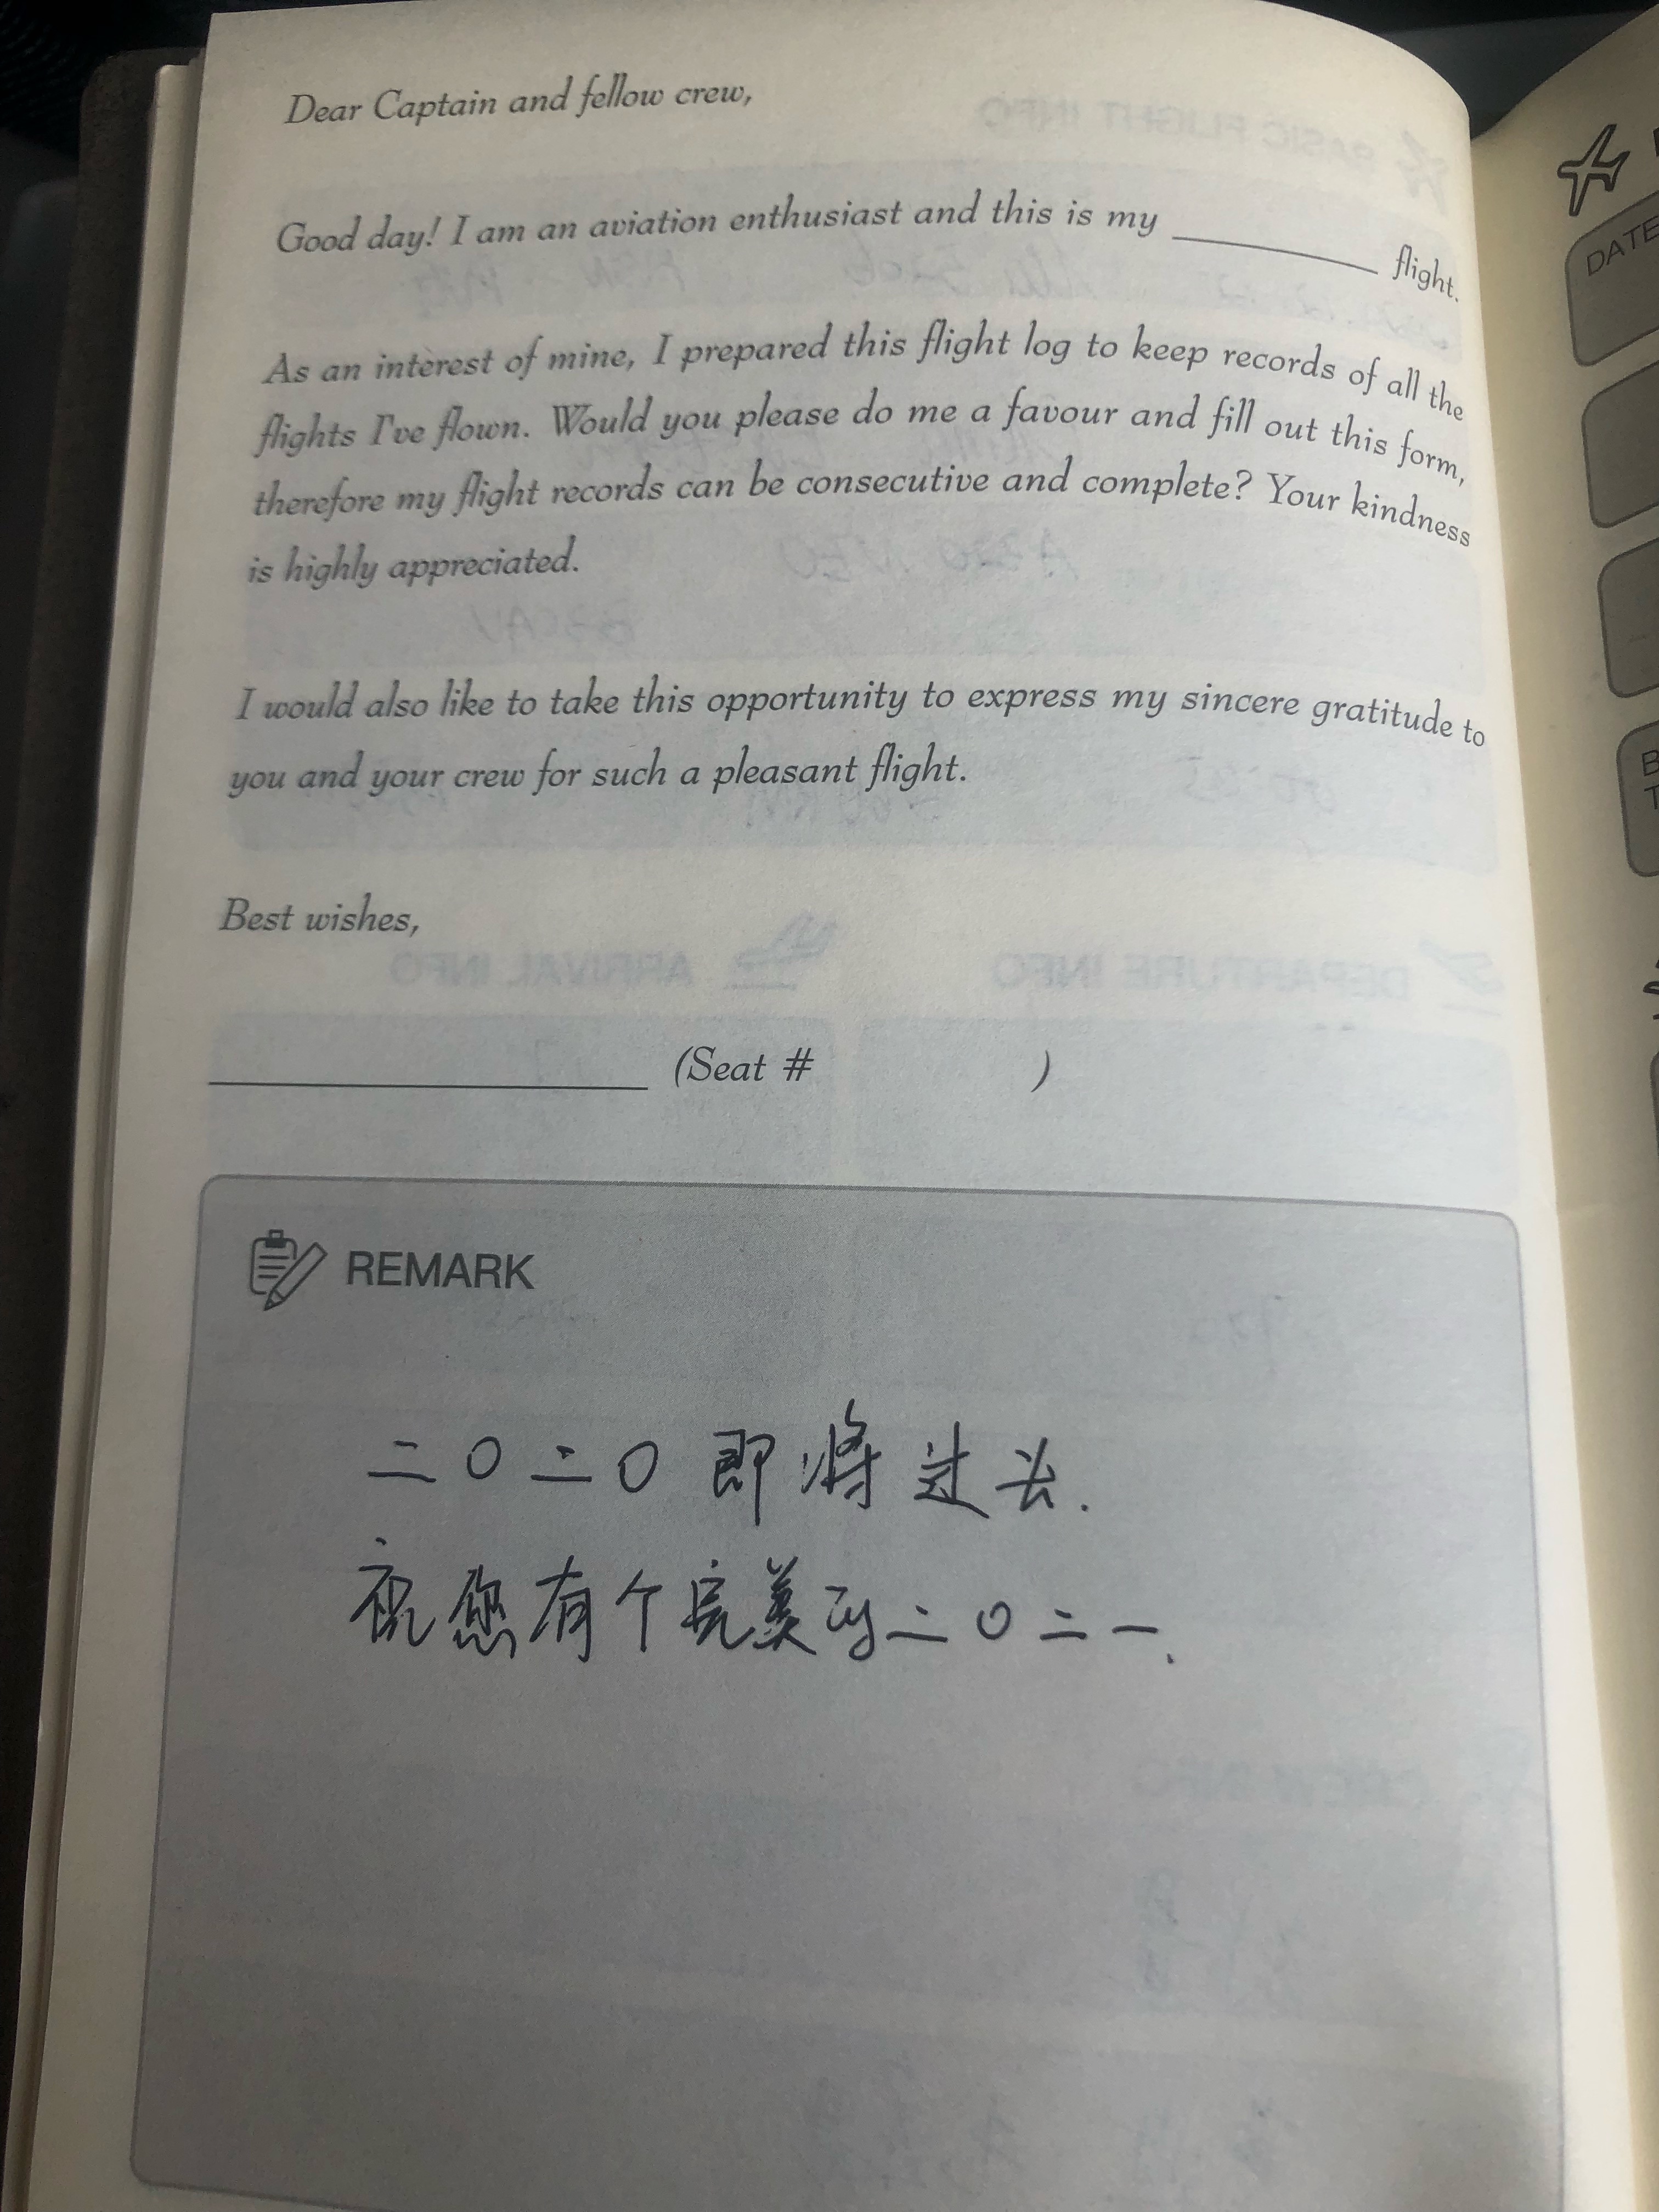 Dear Captain and fellow crew,
Good day! I am an aviation enthusiast and this is my ________ flight.
As an interest of mine, I prepared this flight log to keep records of all the
flights I've flown. Would you please do me a favour and fill out this form,
therefore my flight records can be consecutive and complete? Your kindness
is highly appreciated.
I would also like to take this opportunity to express my sincere gratitude to
you and your crew for such a pleasant flight.
Best wishes,
________________ (Seat # )
REMARK
二〇二〇即将过去.
祝您有个完美的二〇二一.
DATE